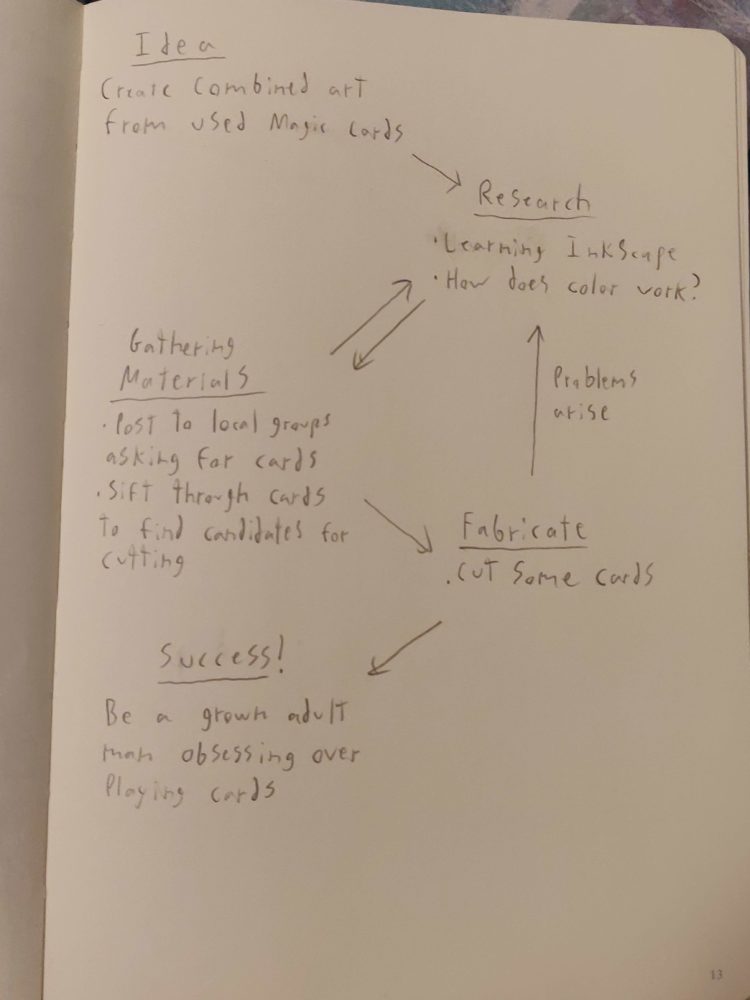 Idea
Create Combined art
from used Magic cards
Research
· Learning InkScape
· How does color work?
Gathering
Materials
· Post to local groups
asking for cards
· Sift through cards
to find candidates for
cutting
Problems
arise
Fabricate
· Cut some cards
Success!
Be a grown adult
man obsessing over
Playing cards
13